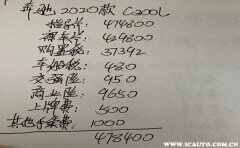 奔驰2020款 C200L
指导价: 474800
裸车价: 429800
购置税: 37392
车船税: 480
交强险: 950
商业险: 9650
上牌费: 500
其他手续费: 1000
478400
WWW.ICAUTO.COM.CN